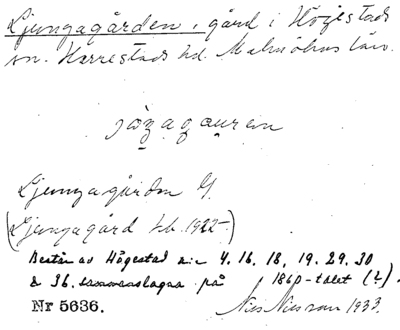 Ljungagården, gård i Högestads
sn. Herrestads hd. Malmöhus län.
Ljungagården G.
(Ljungagård hb. 1922)
Består av Högestad n:r 4. 16. 18. 19. 29. 30
& 36. sammanslagna på 1860-talet (?).
Nr 5636. Nils Nilsson 1933.